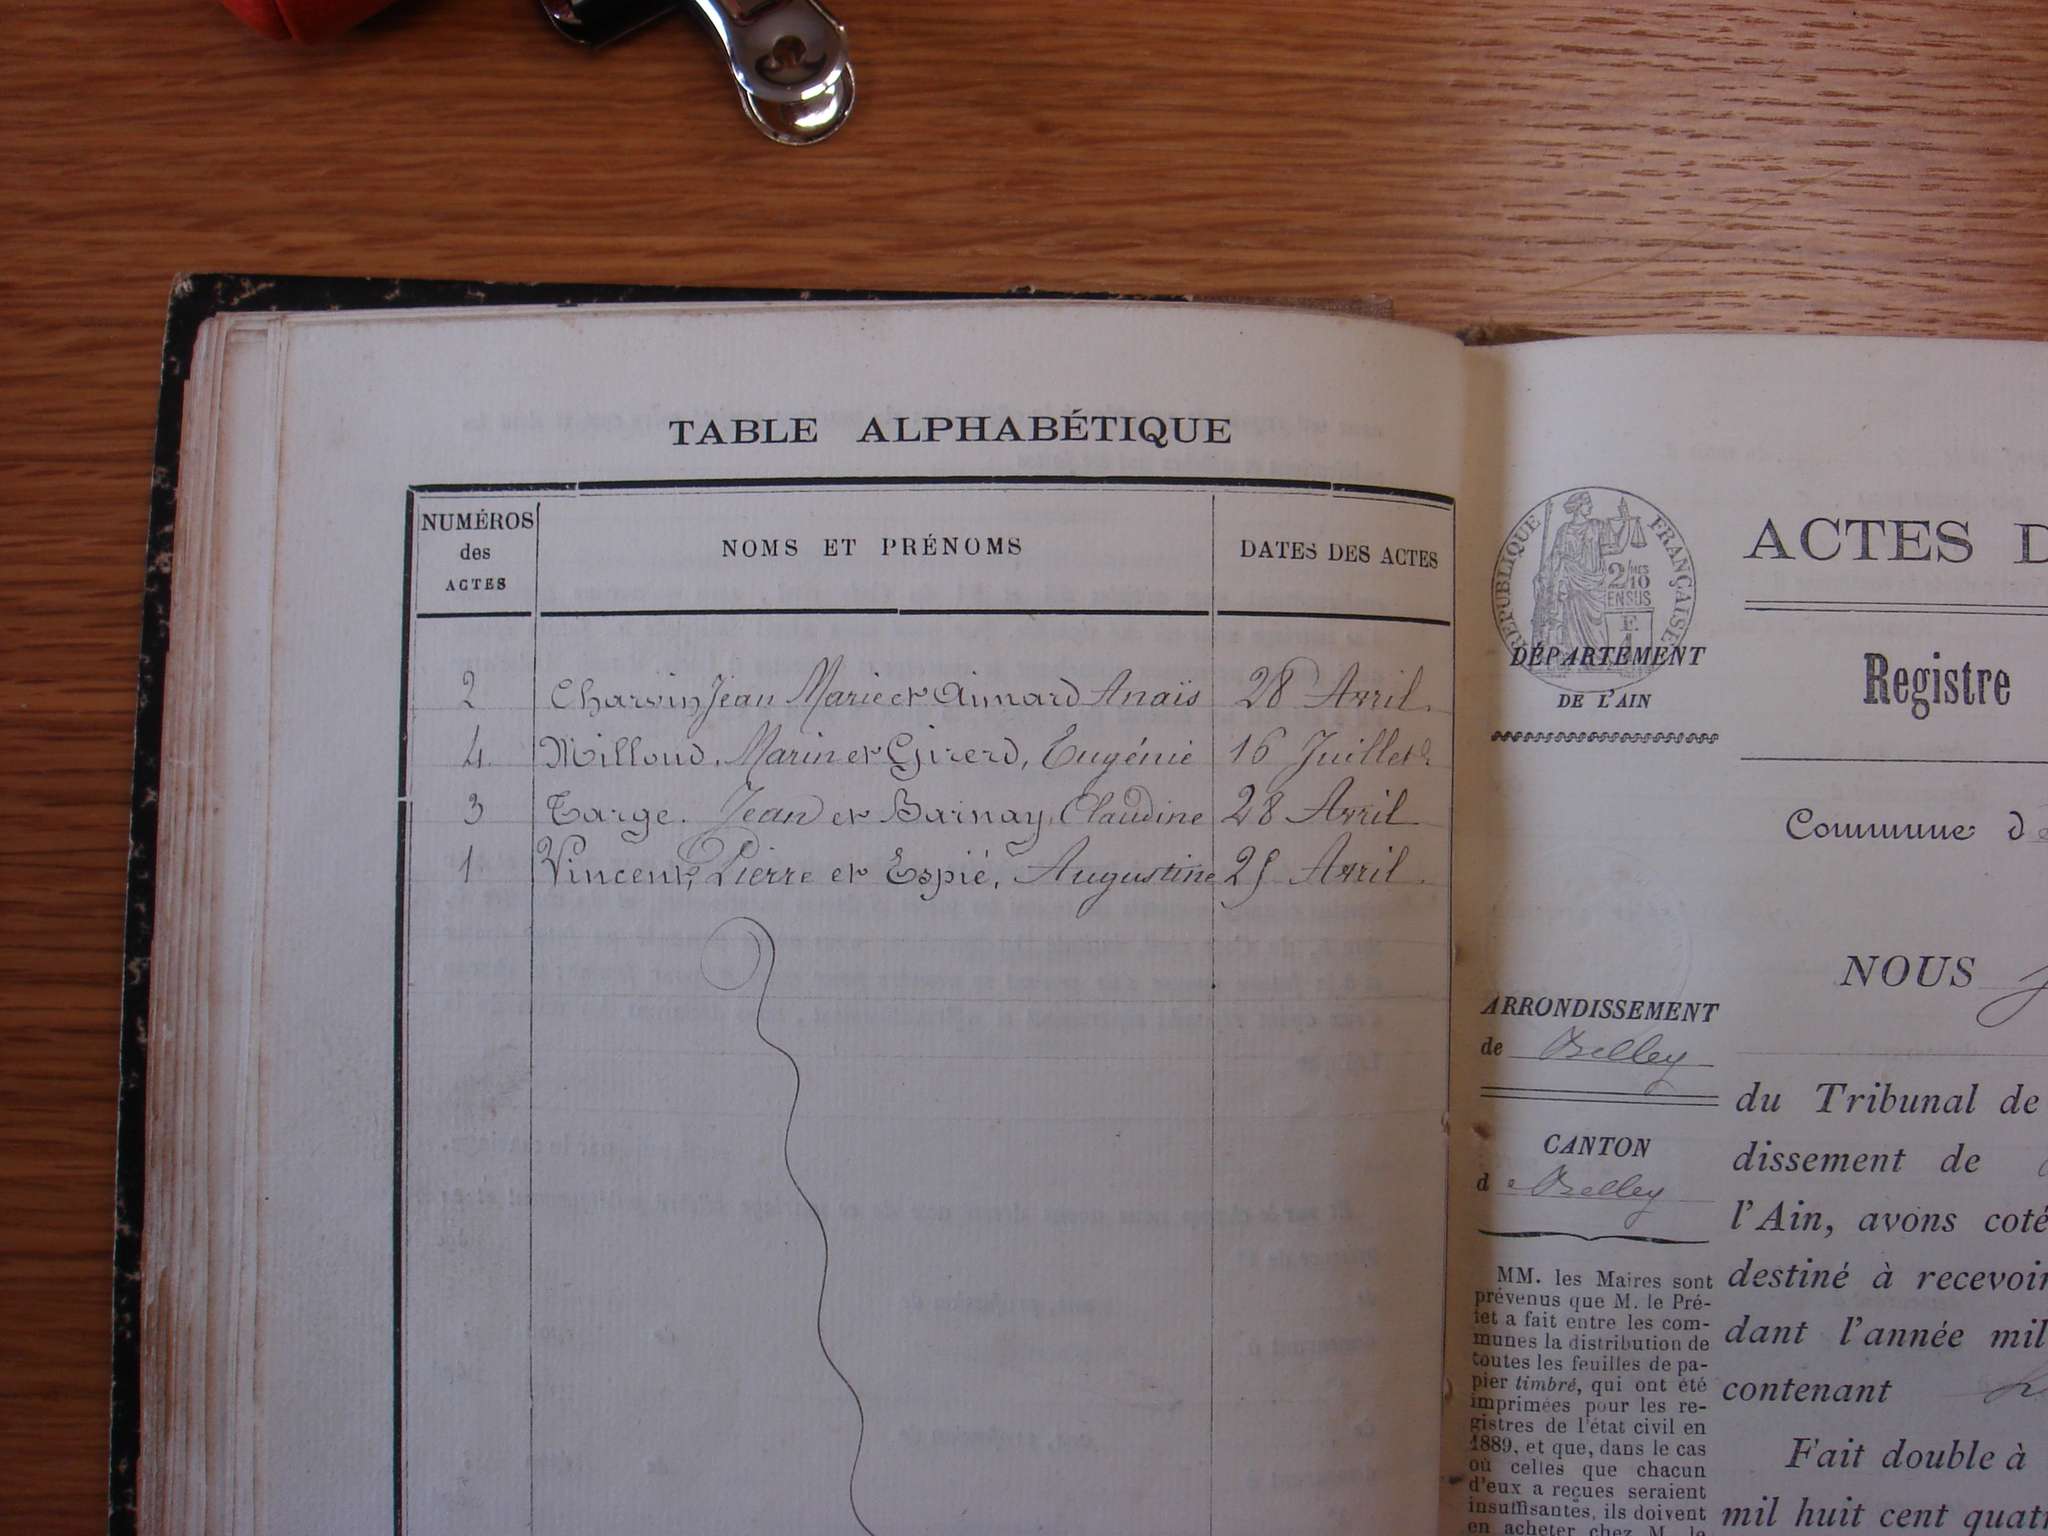 TABLE ALPHABÉTIQUE
NUMÉROS des ACTES NOMS ET PRÉNOMS DATES DES ACTES
2 Charvin, Jean Marie et Aimard Anaïs 28 Avril.
4. Milloud, Marin et Girerd, Eugénie 16 Juillet
3 Targe. Jean et Barnay, Claudine 28 Avril
1 Vincent, Pierre et Espié, Augustine 25 Avril.
RÉPUBLIQUE FRANÇAISE
2/10 MES
EN SUS
E.
1
DÉPARTEMENT
DE L'AIN
ARRONDISSEMENT
de Belley
CANTON
de Belley
MM. les Maires sont
prévenus que M. le Pré-
fet a fait entre les com-
munes la distribution de
toutes les feuilles de pa-
pier timbré, qui ont été
imprimées pour les re-
gistres de l'état civil en
1889, et que, dans le cas
où celles que chacun
d'eux a reçues seraient
insuffisantes, ils doivent
en acheter chez M. le
ACTES D
Registre
Commune d
NOUS
du Tribunal de
dissement de
l'Ain, avons coté
destiné à recevoir
dant l'année mil
contenant
Fait double à
mil huit cent quatr